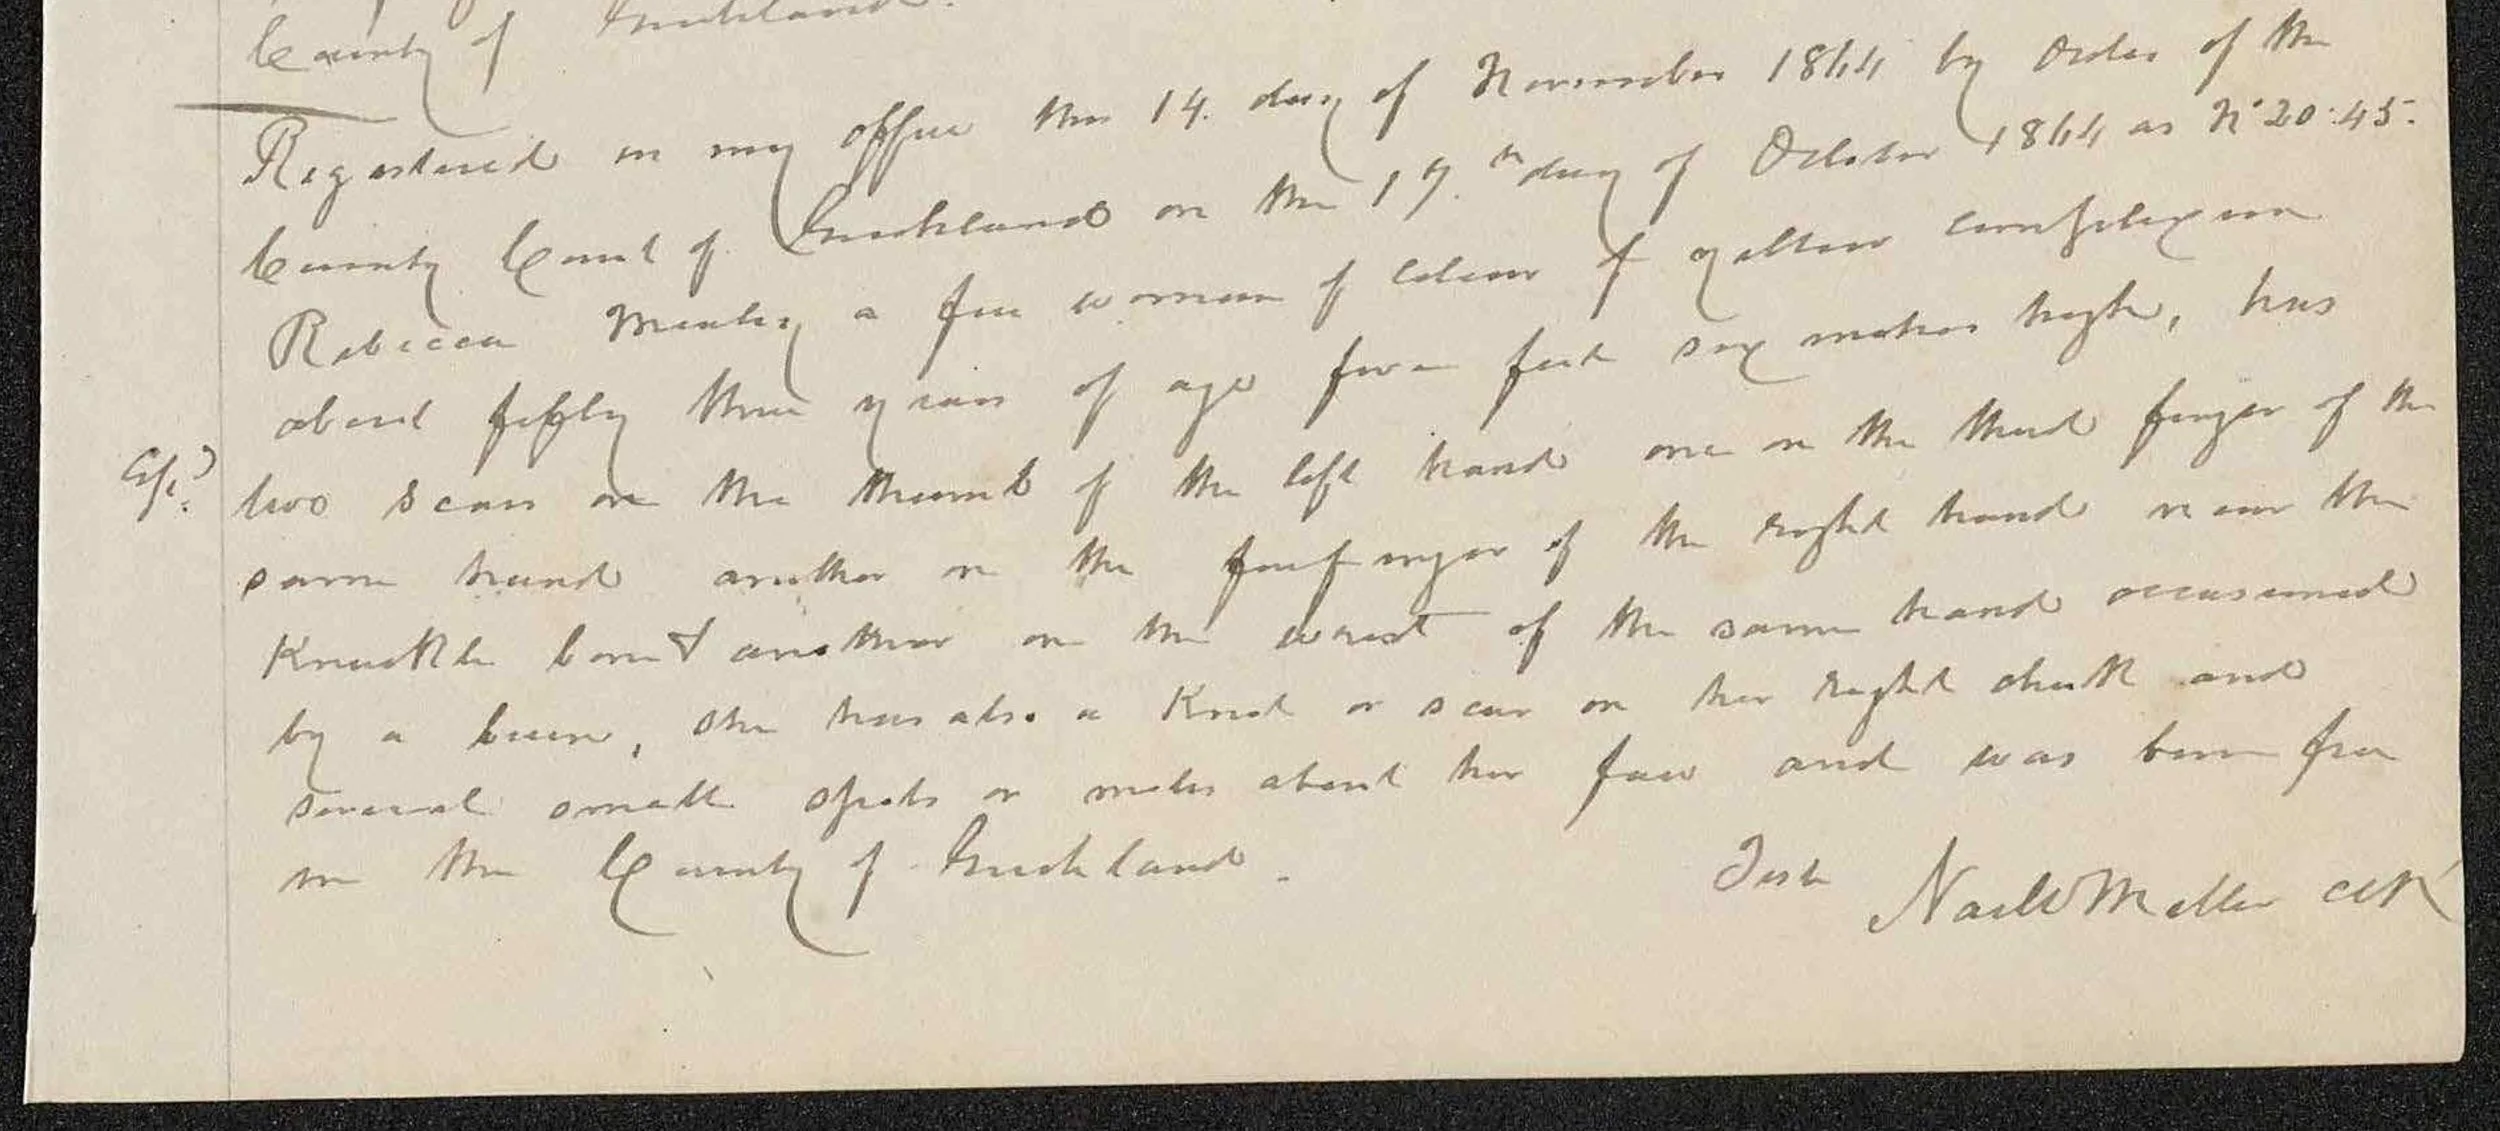 County of Goochland.
Registered in my office this 14. day of November 1864 by Order of the
County Court of Goochland on the 17.th day of October 1864 as No 20:45.
Rebecca a free woman of colour of yellow complexion
about fifty three years of age five feet six inches high, has
two scars on the thumb of the left hand one on the third finger of the
same hand another on the forefinger of the right hand near the
Knuckle bone & another on the wrist of the same hand occasioned
by a burn, she has also a Knot or scar on her right cheek and
several small spots or moles about her face and was born free
in the County of Goochland.
Teste Narcs W Miller clk